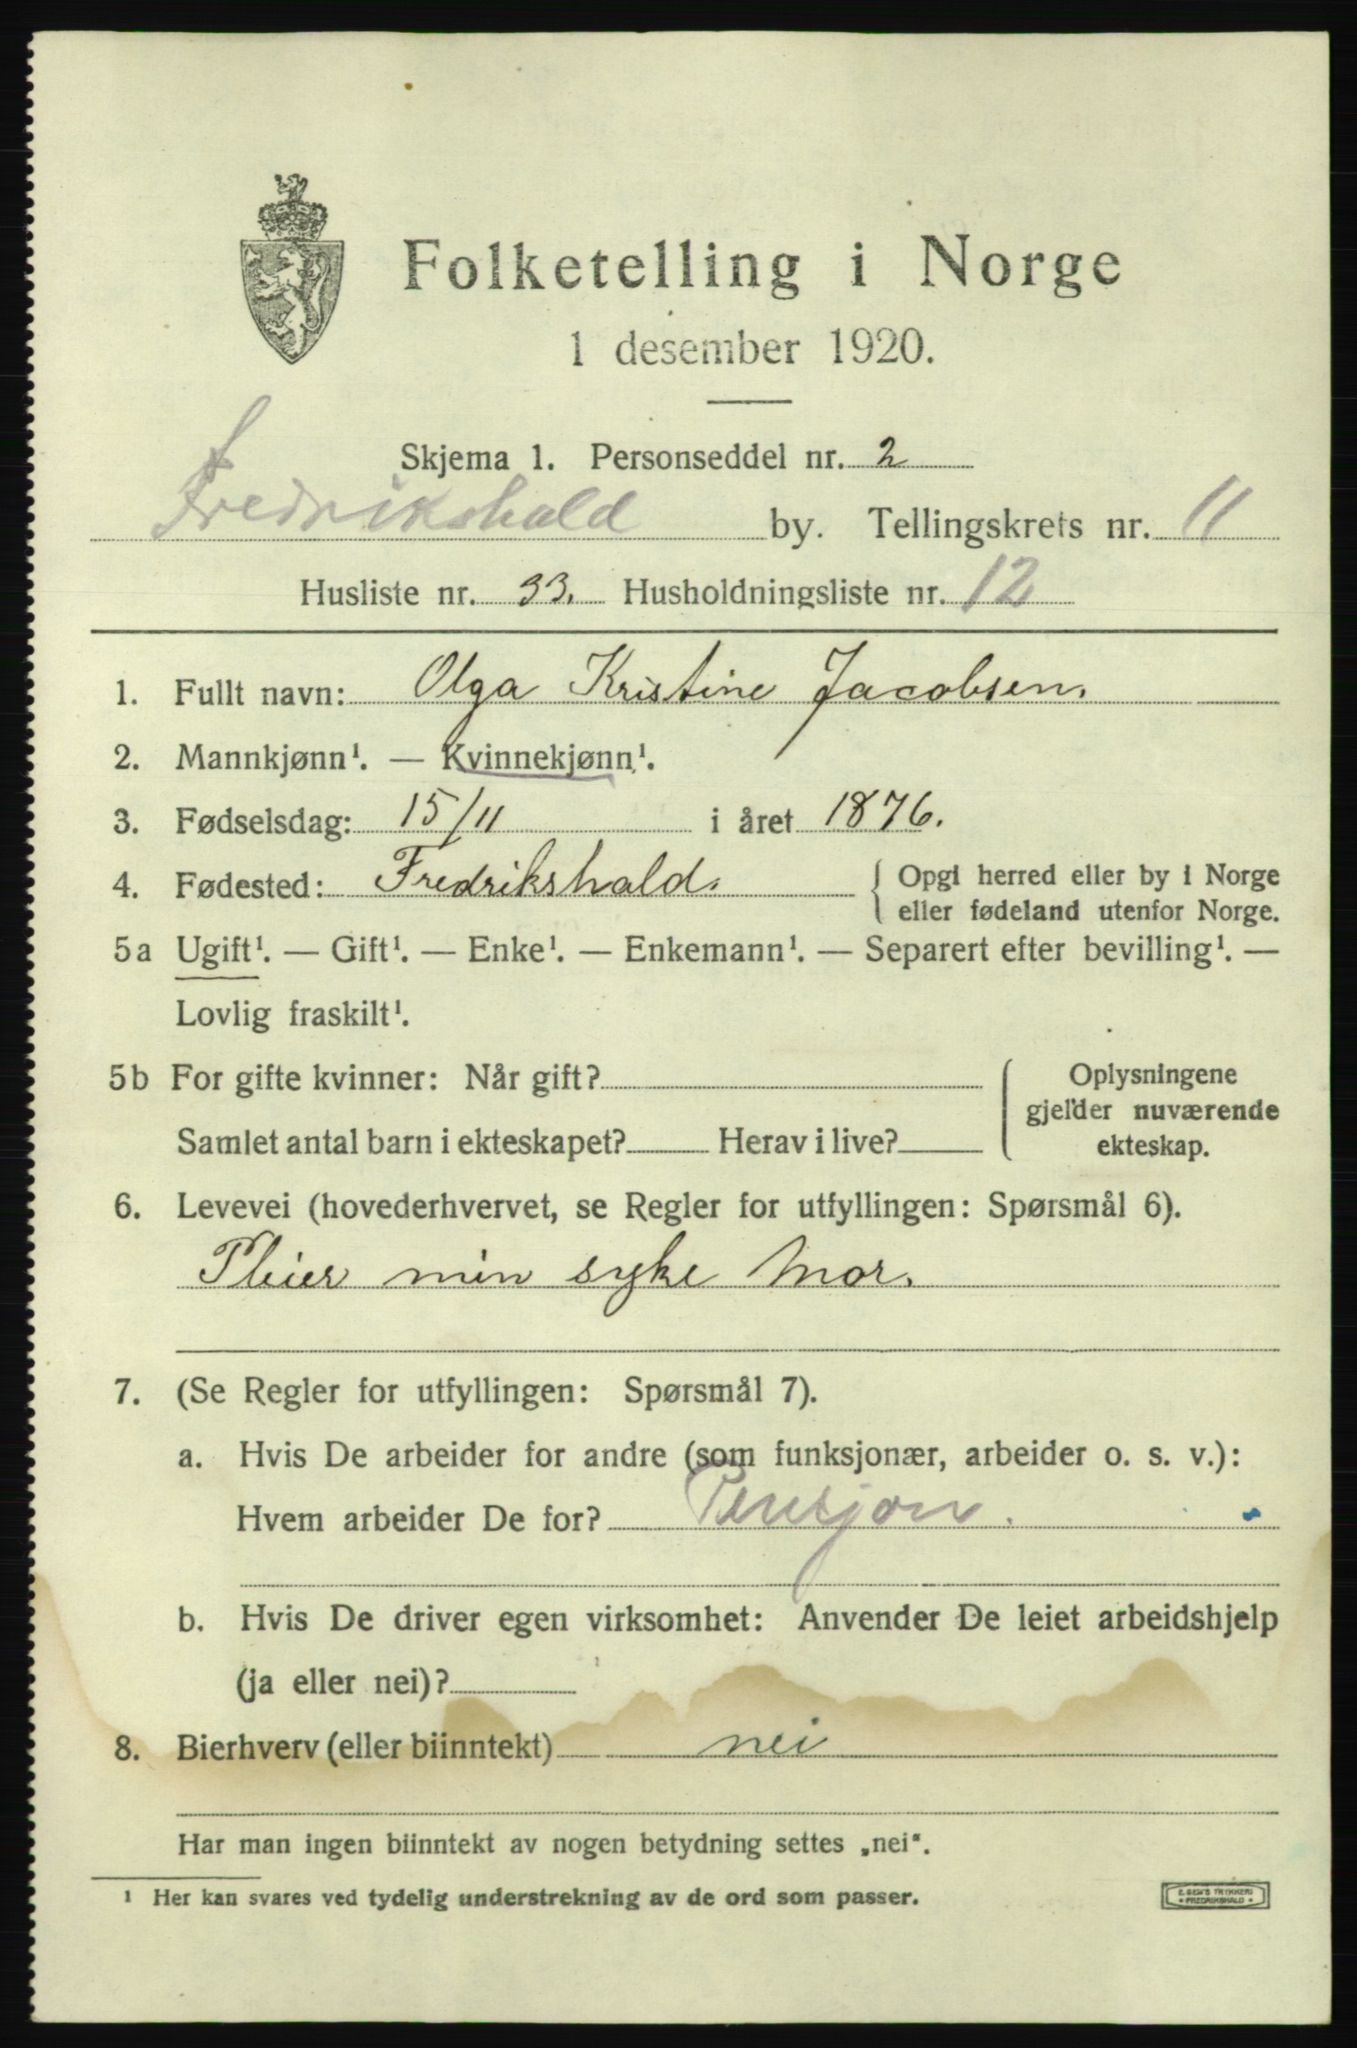 Folketelling i Norge
1 desember 1920.
Skjema 1. Personseddel nr. 2
Fredrikshald by. Tellingskrets nr. 11
Husliste nr. 33. Husholdningsliste nr. 12
1. Fullt navn: Olga Kristine Jacobsen.
2. Mannkjønn¹. — Kvinnekjønn¹.
3. Fødselsdag: 15/11 i året 1876.
4. Fødested: Fredrikshald. { Opgi herred eller by i Norge
eller fødeland utenfor Norge.
5a Ugift¹. — Gift¹. — Enke¹. — Enkemann¹. — Separert efter bevilling¹. —
Lovlig fraskilt¹.
5b For gifte kvinner: Når gift? { Oplysningene
gjelder nuværende
Samlet antal barn i ekteskapet? Herav i live? ekteskap.
6. Levevei (hovederhvervet, se Regler for utfyllingen: Spørsmål 6).
Pleier min syke Mor.
7. (Se Regler for utfyllingen: Spørsmål 7).
a. Hvis De arbeider for andre (som funksjonær, arbeider o. s. v.):
Hvem arbeider De for? Pensjon.
b. Hvis De driver egen virksomhet: Anvender De leiet arbeidshjelp
(ja eller nei)?
8. Bierhverv (eller biinntekt) nei
Har man ingen biinntekt av nogen betydning settes „nei“.
¹ Her kan svares ved tydelig understrekning av de ord som passer.
FREDRIKSHALD